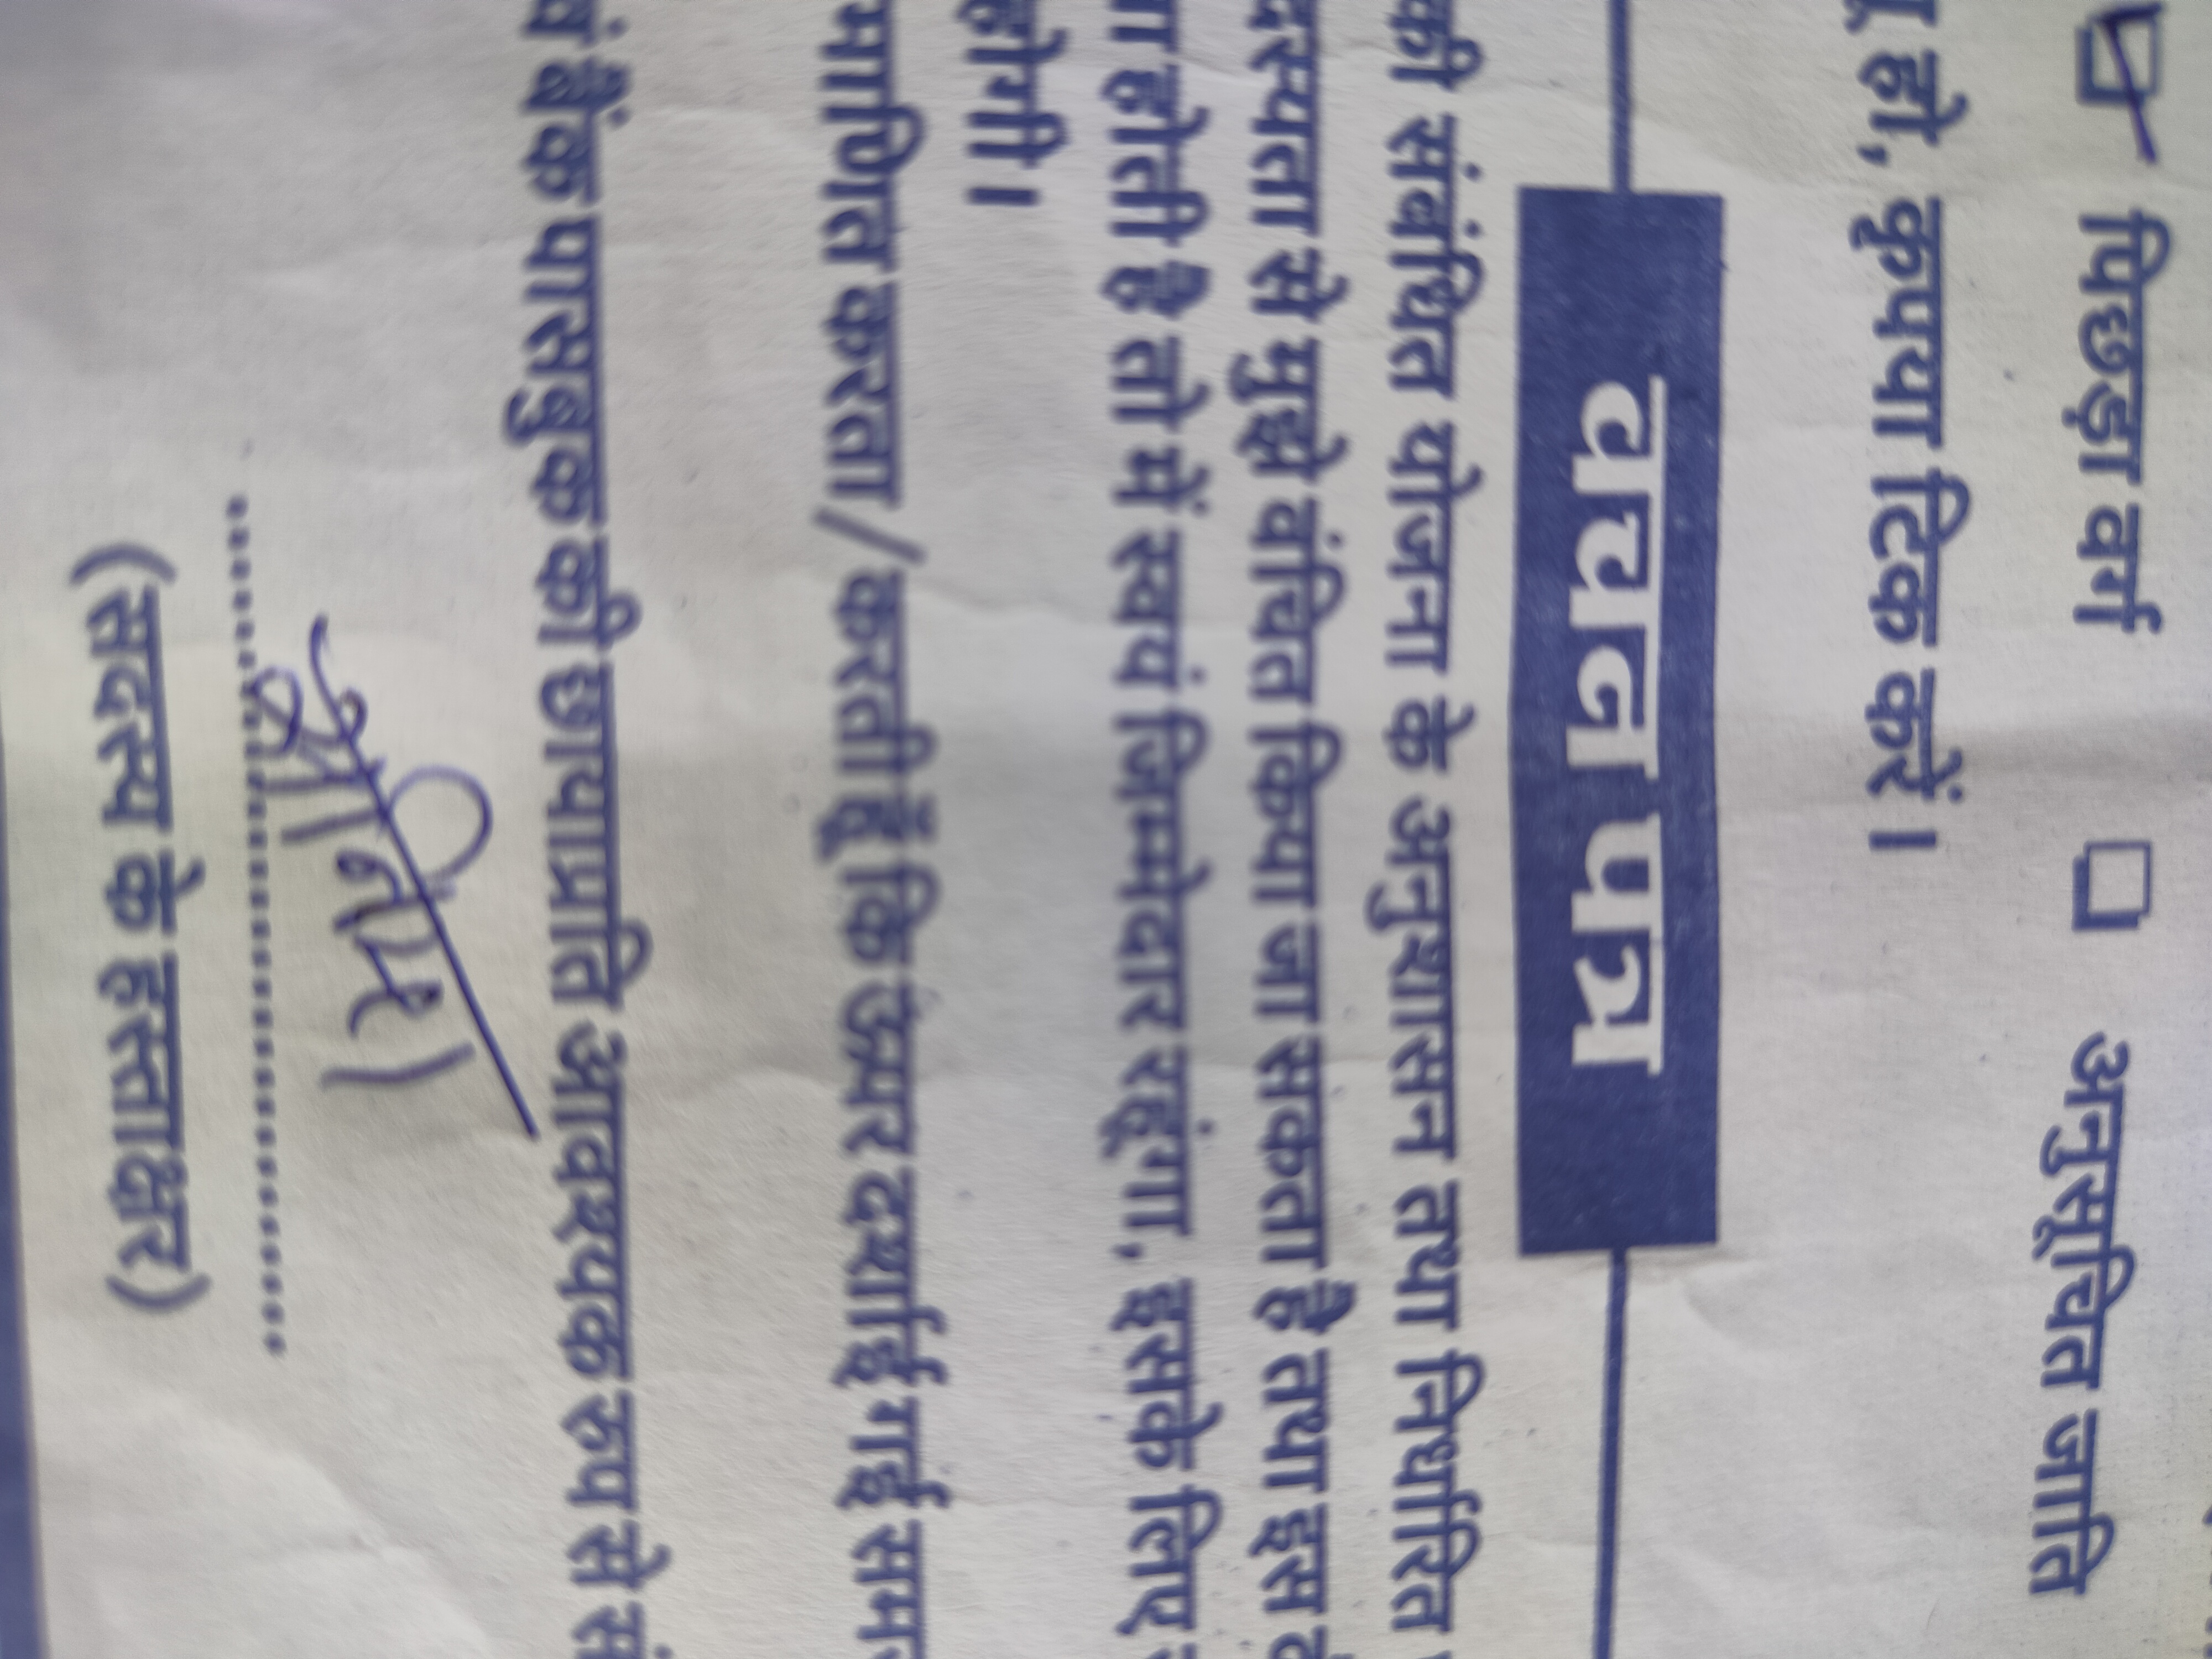 पिछड़ा वर्ग अनुसूचित जाति
हो, कृपया टिक करें।
वचन पत्र
की संबंधित योजना के अनुशासन तथा निर्धारित
दस्यता से मुझे वंचित किया जा सकता है तथा इस
होती है तो में स्वयं जिम्मेदार रहूंगा, इसके लिए
होगी।
माणित करता/करती हूँ कि ऊपर दर्शाई गई सम
बैंक पासबुक की छायाप्रति आवश्यक रुप से सं
(सदस्य के हस्ताक्षर)